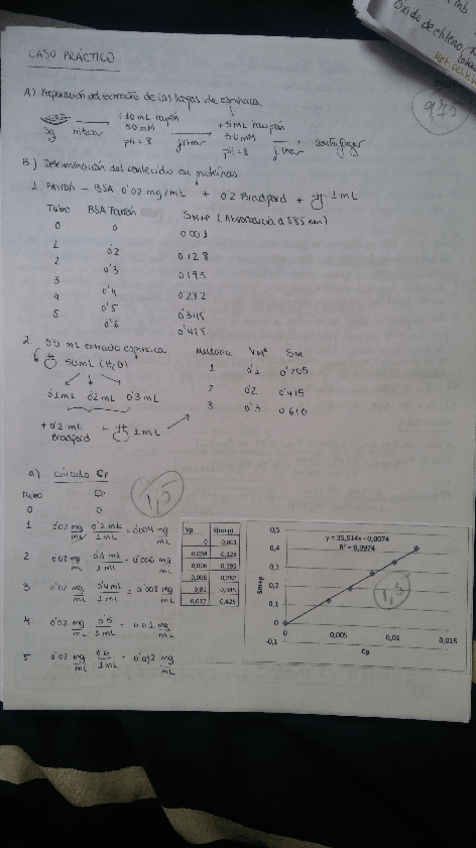 Óxido de etileno
CASO PRÁCTICO
A) Preparación del extracto de las hojas de espinaca
+10 mL tampón
50 mM
pH = 8
+5 mL tampón
50 mM
pH = 8
3g triturar filtrar filtrar centrifugar
9,75
B) Determinación del contenido en proteínas
1. PATRÓN – BSA 0'02 mg/mL + 0'2 Bradford + 1 mL
Tubo BSA Patrón Sm+p (Absorbancia a 595 nm)
0 0 0'001
1 0'2 0'128
2 0'3 0'195
3 0'4 0'282
4 0'5 0'345
5 0'6 0'425
2. 0'5 mL extracto espinaca
50 mL (H2O)
0'1 mL 0'2 mL 0'3 mL
+ 0'2 mL
Bradford
1 mL
Muestra VM Sm
1 0'1 0'205
2 0'2 0'415
3 0'3 0'610
a) Cálculo Cp
1,5
Tubo Cp
0 0
1 0'02 mg/mL 0'2 mL/1 mL = 0'004 mg/mL
2 0'02 mg/mL 0'3 mL/1 mL = 0'006 mg/mL
3 0'02 mg/mL 0'4 mL/1 mL = 0'008 mg/mL
4 0'02 mg/mL 0'5/1 mL = 0'01 mg/mL
5 0'02 mg/mL 0'6/1 mL = 0'012 mg/mL
Vp S(m+p)
0 0,001
0,004 0,128
0,006 0,195
0,008 0,282
0,01 0,345
0,012 0,425
y = 35,514x - 0,0074
R² = 0,9974
0,5
0,4
0,3
0,2
0,1
0
-0,1
0 0,005 0,01 0,015
Sm+p
Cp
1,5